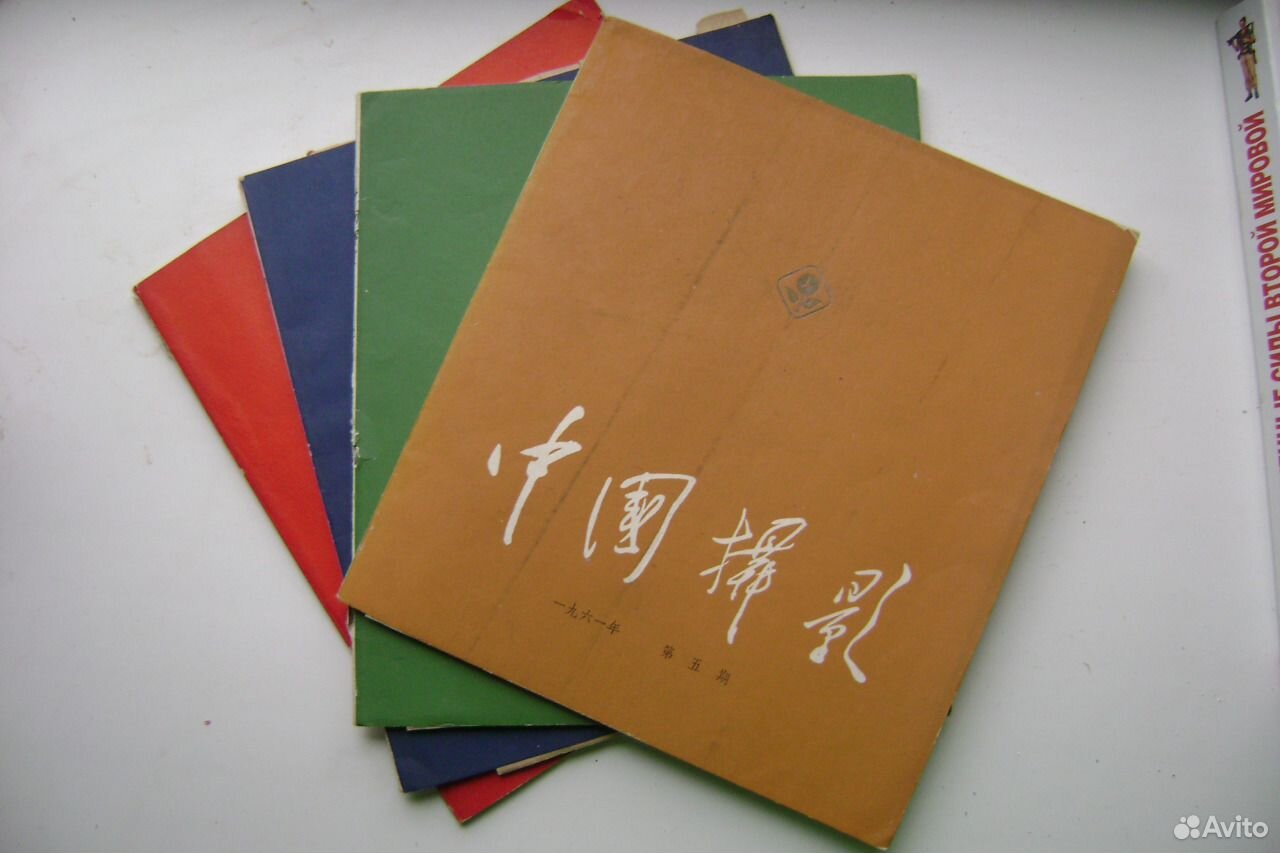 中國攝影
一九六一年 第五期
СИЛЫ ВТОРОЙ МИРОВОЙ
Avito